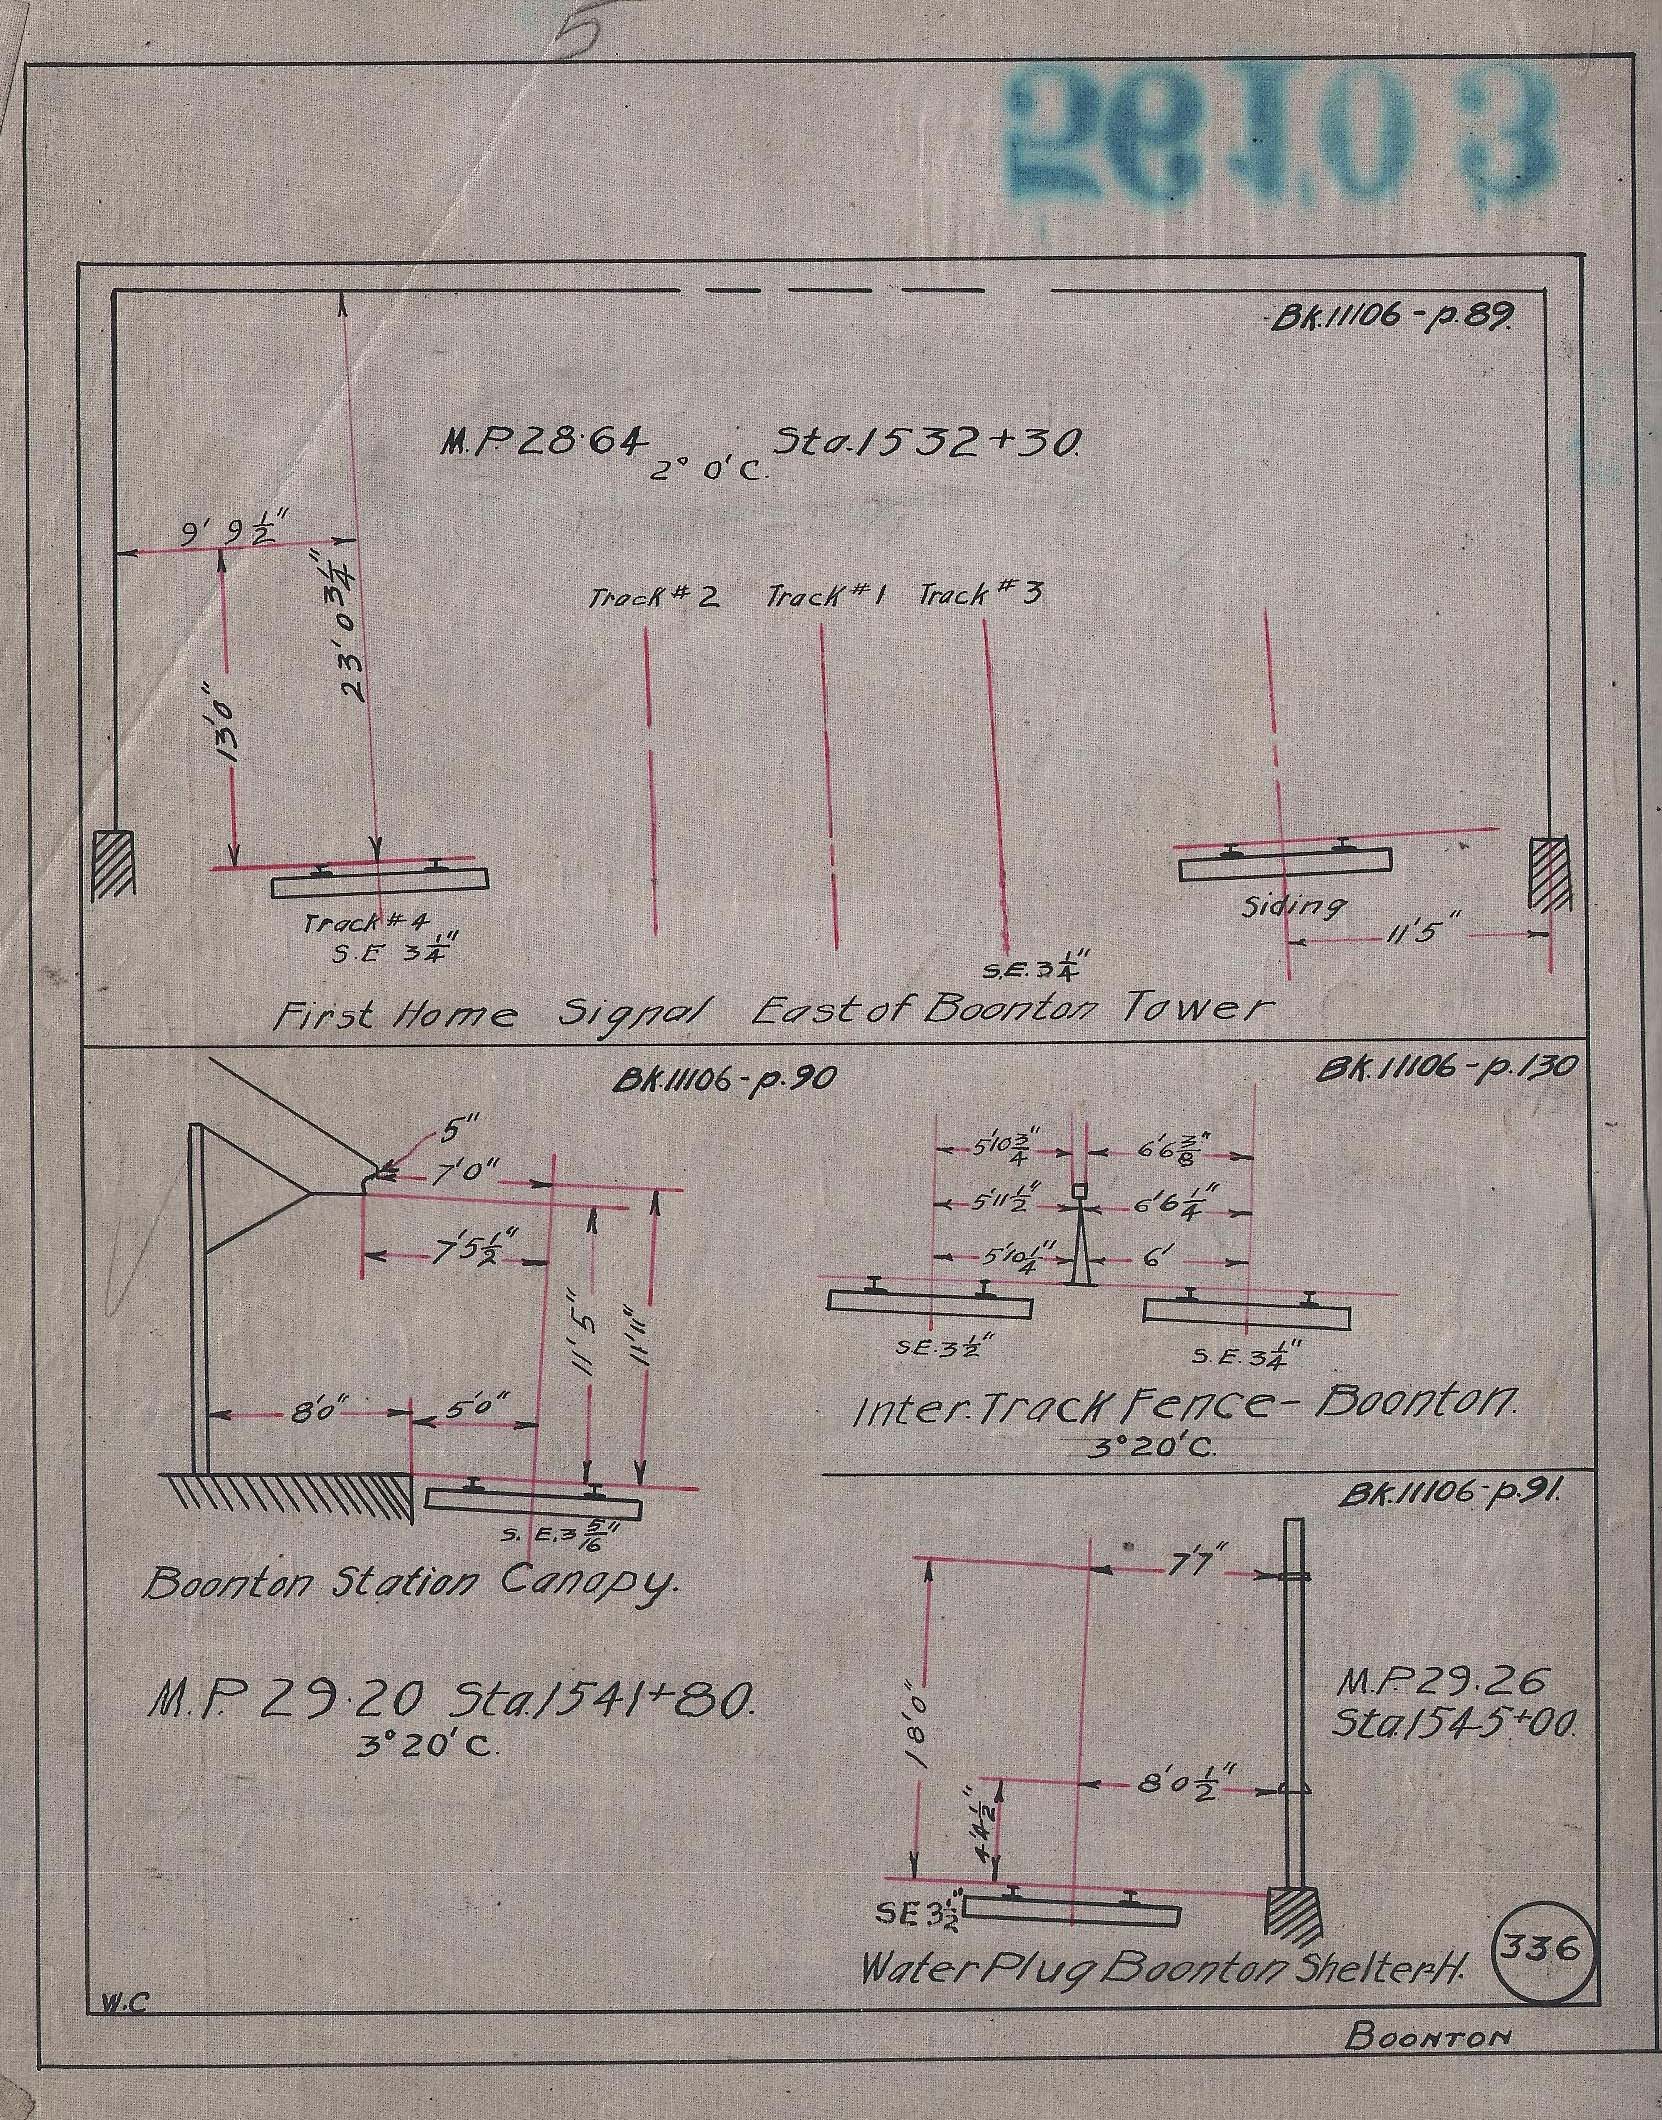 5
56103
Bk.11106-p.89.
M.P.28.64 Sta.1532+30.
2° 0' C.
9' 9 1/2"
23' 0 3/4"
13'0"
Track #2 Track #1 Track #3
Track #4
S.E 3 1/4"
Siding
11'5"
S.E. 3 1/4"
First Home Signal East of Boonton Tower
Bk.11106-p.90
5"
7'0"
7'5 1/2"
11'5"
11'11"
8'0" 5'0"
S.E.3 5/16"
Boonton Station Canopy.
M.P. 29.20 Sta.1541+80.
3°20' C.
Bk.11106-p.130
5'10 3/4" 6'6 3/8"
5'11 1/2" 6'6 1/4"
5'10 1/4" 6'
S.E. 3 1/2" S.E. 3 1/4"
Inter. Track Fence- Boonton.
3°20'C.
Bk.11106-p.91.
7'7"
18'0"
M.P.29.26
Sta.1545+00.
8'0 1/2"
4'4 1/2"
SE 3 1/2"
Water Plug Boonton Shelter-H.
336
W.C
BOONTON